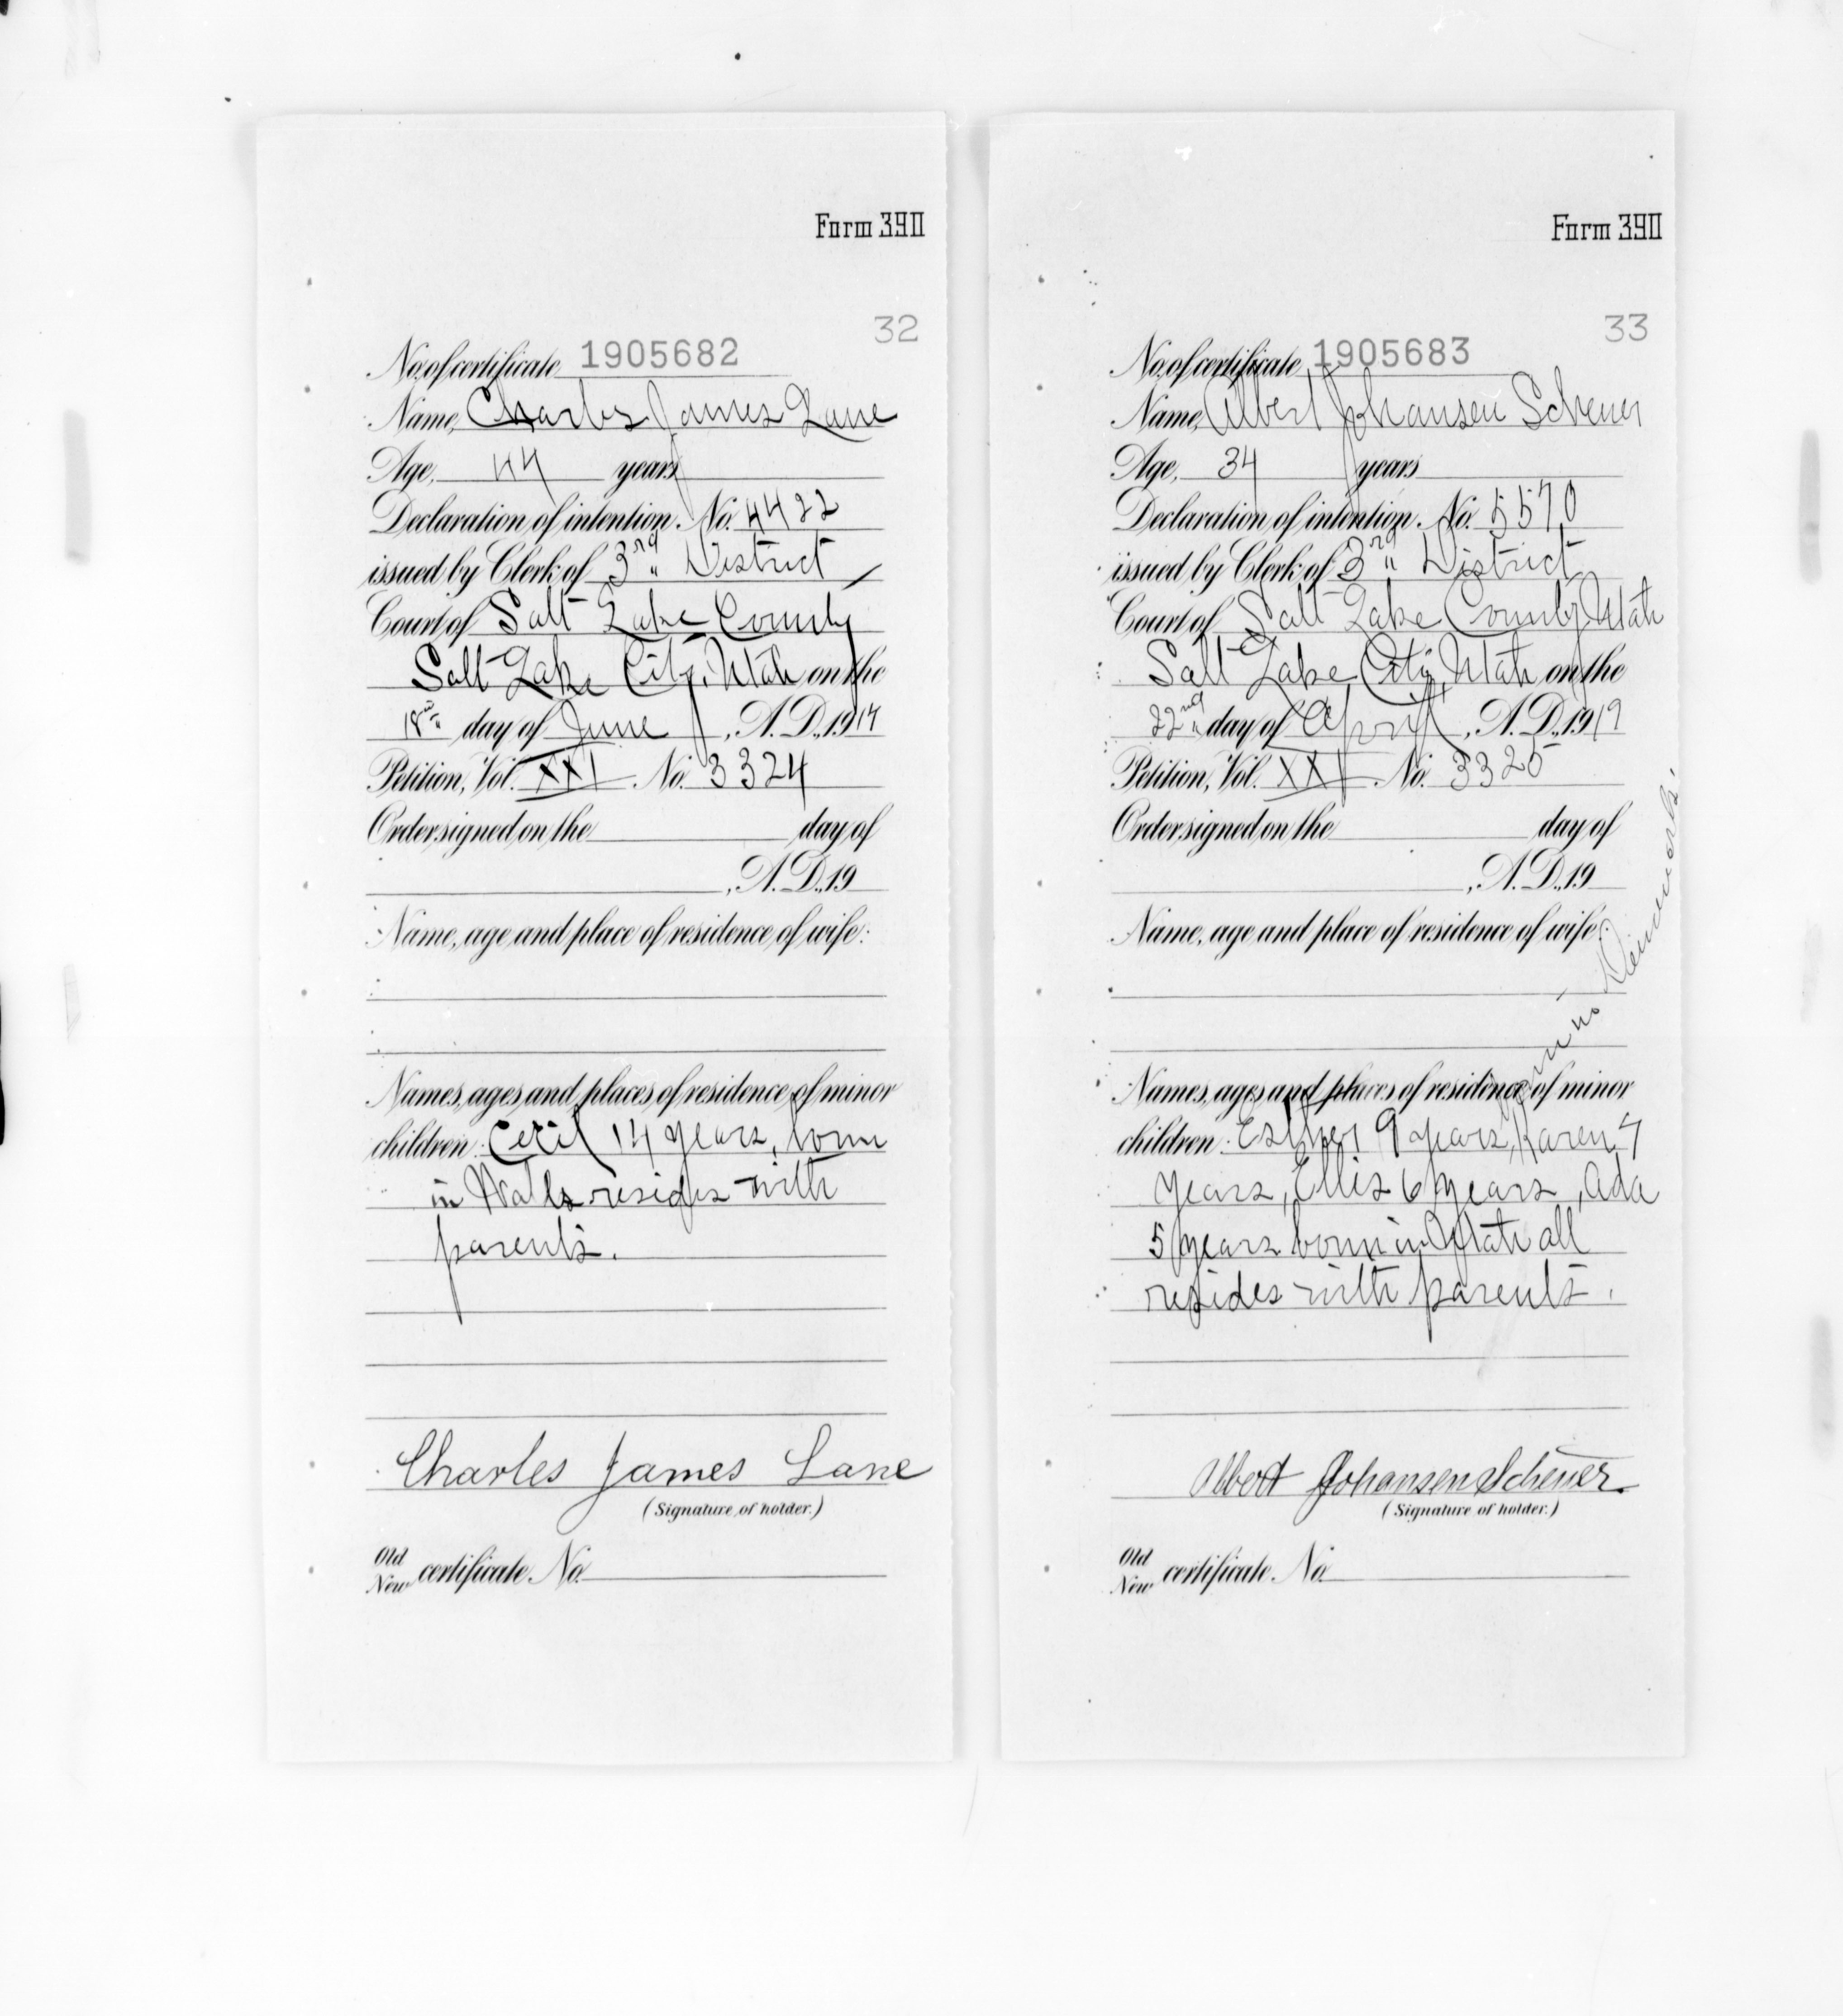 Form 390
32
No. of certificate 1905682
Name, Charles James Lane
Age, 44 years
Declaration of intention. No. 4422
issued by Clerk of 3rd District
Court of Salt Lake County
Salt Lake City, Utah on the
18th day of June, A.D., 1917
Petition, Vol. XXI No. 3324
Order signed on the day of
, A.D., 19
Name, age and place of residence of wife:
Names, ages and places of residence of minor
children: Cecil 14 years, born
in Wales resides with
parents.
Charles James Lane
(Signature of holder.)
Old
New certificate No.
Form 390
33
No. of certificate 1905683
Name, Albert Johansen Scheuer
Age, 34 years
Declaration of intention. No. 5570
issued by Clerk of 3rd District
Court of Salt Lake County, Utah
Salt Lake City, Utah on the
22nd day of April, A.D., 1919
Petition, Vol. XXI No. 3325
Order signed on the day of
, A.D., 19
Name, age and place of residence of wife:
Names, ages and places of residence of minor
children: Esther 9 years, Karen 7
years, Ellis 6 years, Ada
5 years born in Utah all
resides with parents.
born in Denmark.
Albert Johansen Scheuer
(Signature of holder.)
Old
New certificate No.